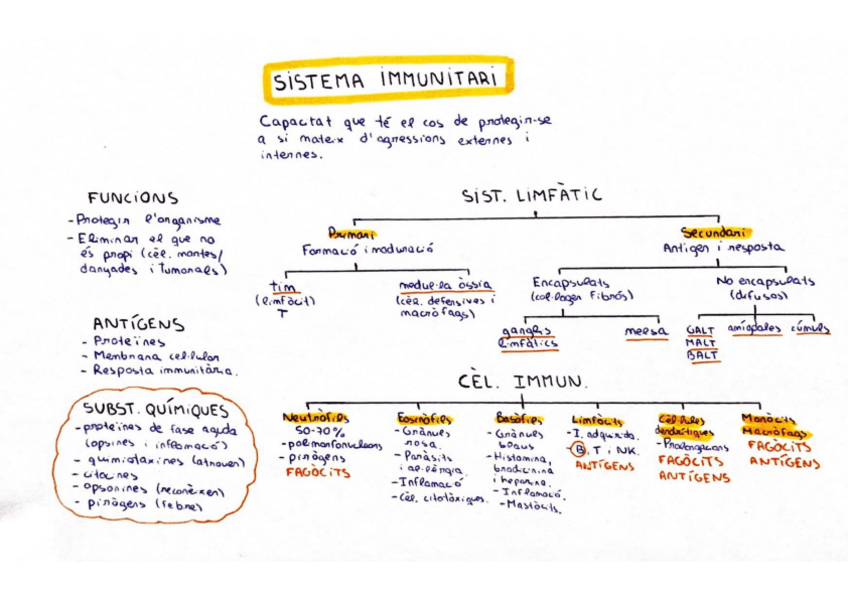 SISTEMA IMMUNITARI
Capacitat que té el cos de protegir-se
a si mateix d'agressions externes i
internes.
FUNCIONS
- Protegir l'organisme
- Eliminar el que no
és propi (cèl. mortes/
danyades i tumorals)
ANTÍGENS
- Proteïnes
- Membrana cel·lular
- Resposta immunitària.
SUBST. QUÍMIQUES
- proteïnes de fase aguda
(opsines i inflamació)
- quimiotaxines (atreuen)
- citocines
- opsonines (reconèixen)
- pirògens (febre)
SIST. LIMFÀTIC
Primari
Formació i maduració
tim
(limfòcit)
T
medul·la òssia
(cèl. defensives i
macròfags)
Secundari
Antigen i resposta
Encapsulats
(col·lagen fibrós)
ganglis
limfàtics
melsa
No encapsulats
(difusos)
GALT
MALT
BALT
amígdales
cúmuls
CÈL. IMMUN.
Neutròfils
50-70%
- polimorfonuclears
- pirògens
FAGÒCITS
Eosinòfils
- Grànuls
rosa.
- Paràsits
i al·lèrgia.
- Inflamació
- Cèl. citotòxiques.
Basòfils
- Grànuls
blaus
- Histamina,
bradicinina
i heparina.
- Inflamació.
- Mastòcits.
Limfòcits
- I. adquirida.
- B, T i NK.
ANTÍGENS
Cèl·lules
dendrítiques
- Prolongacions
FAGÒCITS
ANTÍGENS
Monòcits
Macròfags
FAGÒCITS
ANTÍGENS